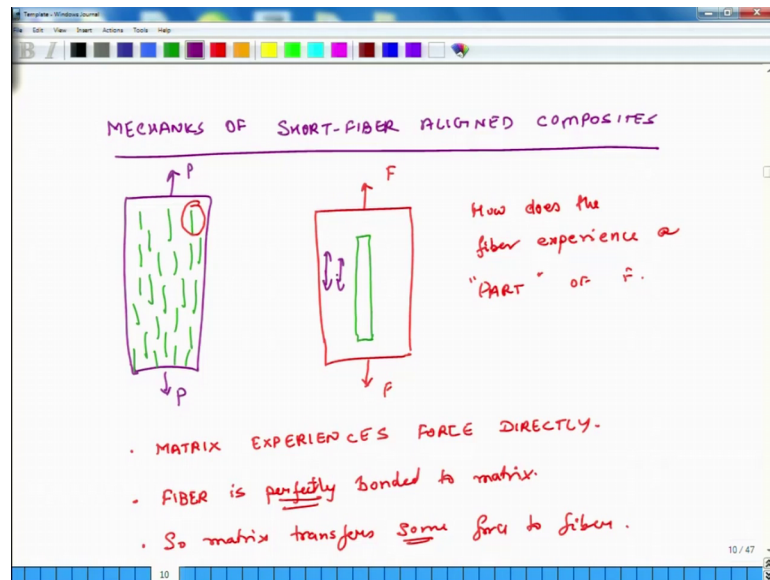 Template - Windows Journal
File Edit View Insert Actions Tools Help
B I
MECHANKS OF SHORT-FIBER ALIGINED COMPOSITES
P
F
How does the
fiber experience a
"PART" OF F.
F
P
. MATRIX EXPERIENCES FORCE DIRECTLY.
. FIBER is perfectly bonded to matrix.
. So matrix transfers some force to fiber.
10 / 47
10